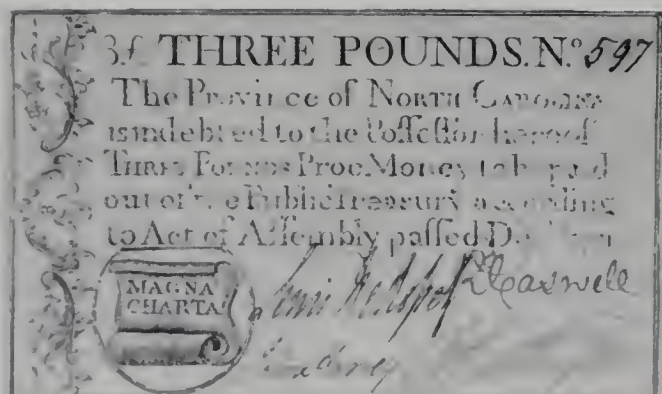 3£ THREE POUNDS. No. 597
The Province of NORTH CAROLINA
is indebted to the Poſſeſſor hereof
THREE POUNDS Proc. Money to be paid
out of the Public Treaſury according
to Act of Aſſembly paſſed
MAGNA
CHARTA
R Caswell